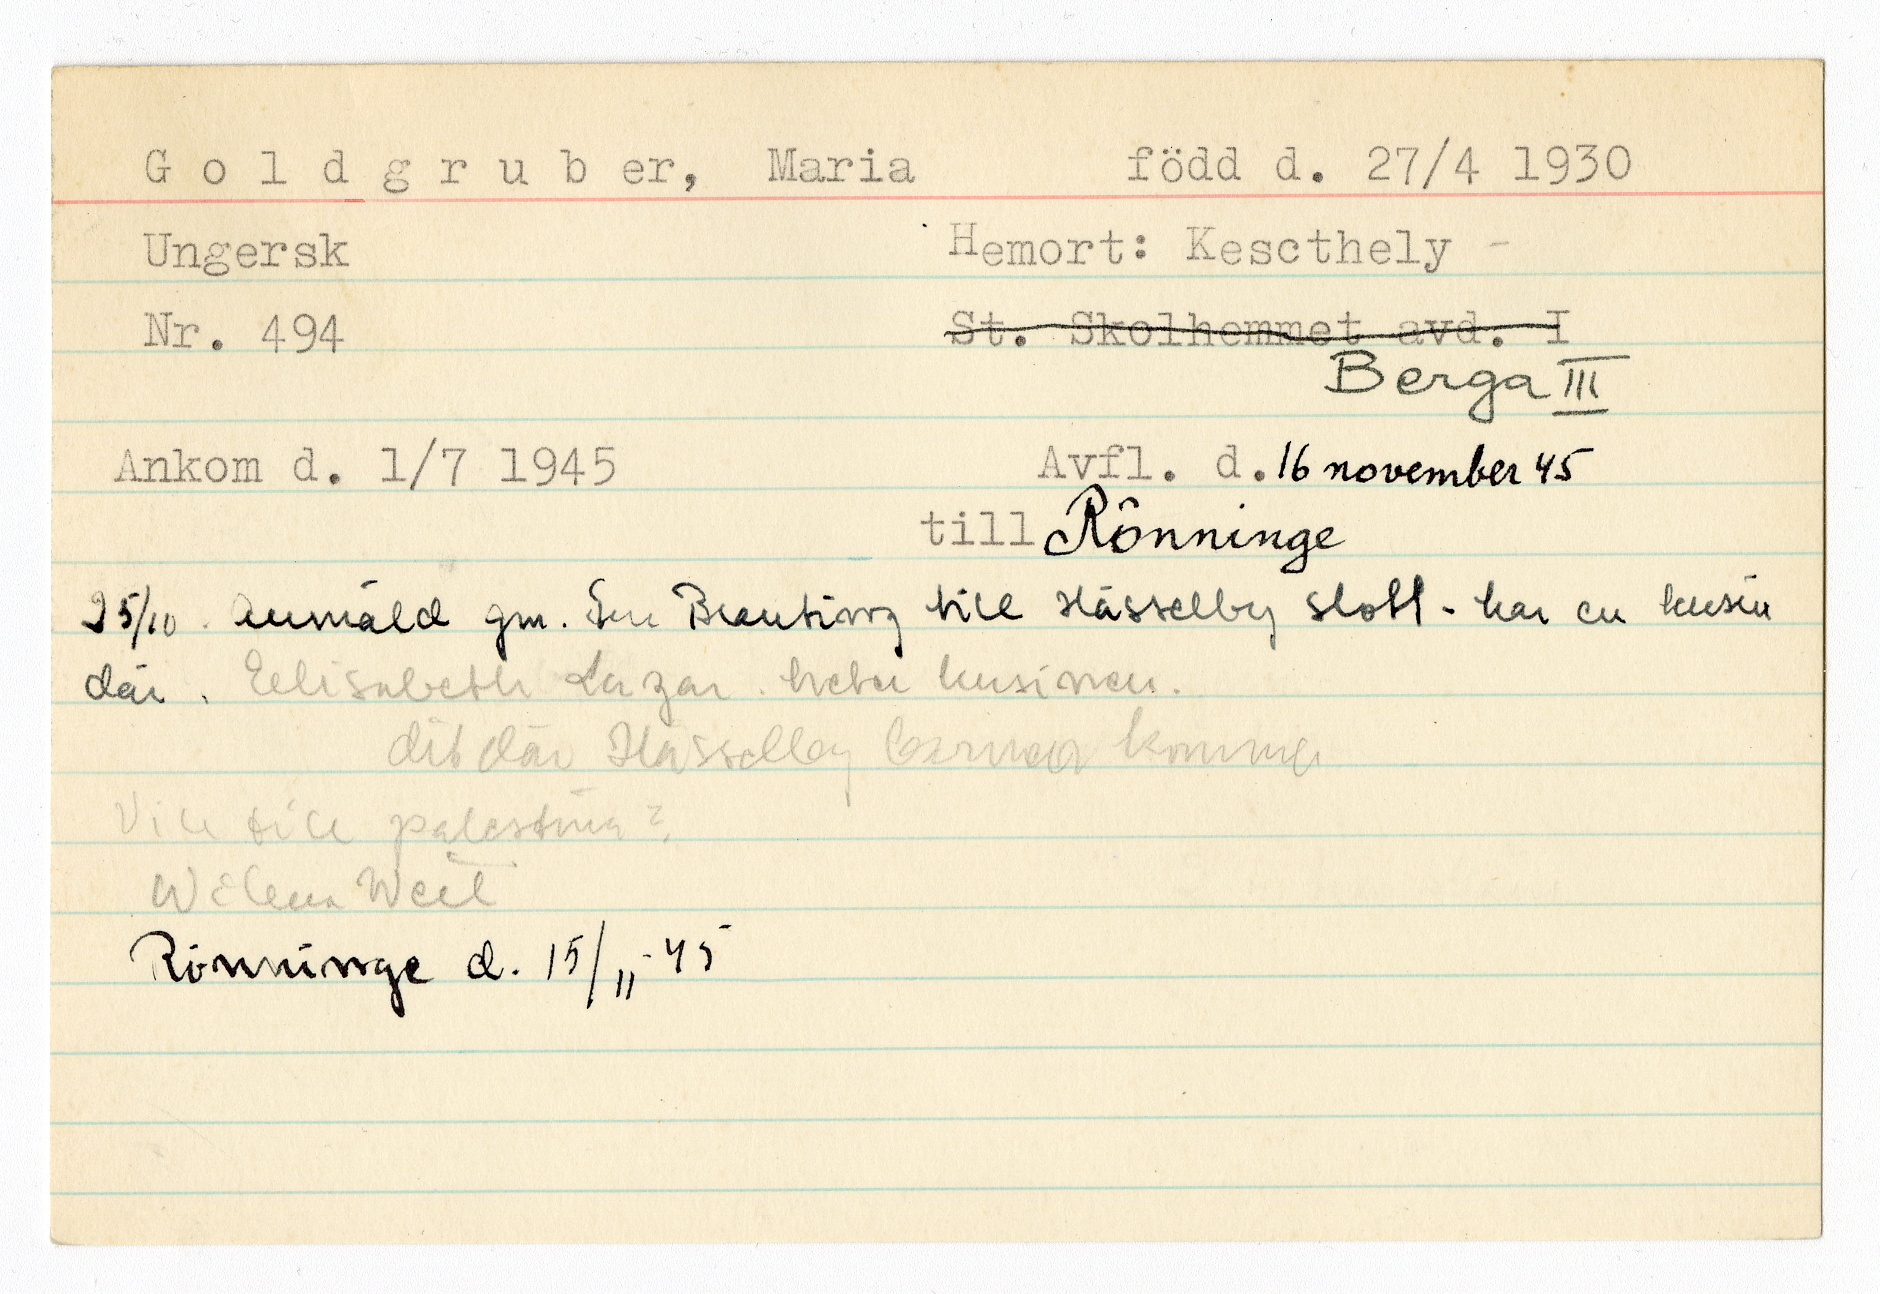 Goldgruber, Maria född d. 27/4 1930
Ungersk Hemort: Kescthely -
Nr. 494 St. Skolhemmet avd. I
Berga III
Ankom d. 1/7 1945 Avfl. d. 16 november 45
till Rönninge
25/10. Anmäld gm. Brauting till Hässelby slott - har en kusin
där. Elisabeth Lazar. heter kusinen.
dit där Hässelby barnen komma
Vill till palestina?
Weit
Rönninge d. 15/11-45